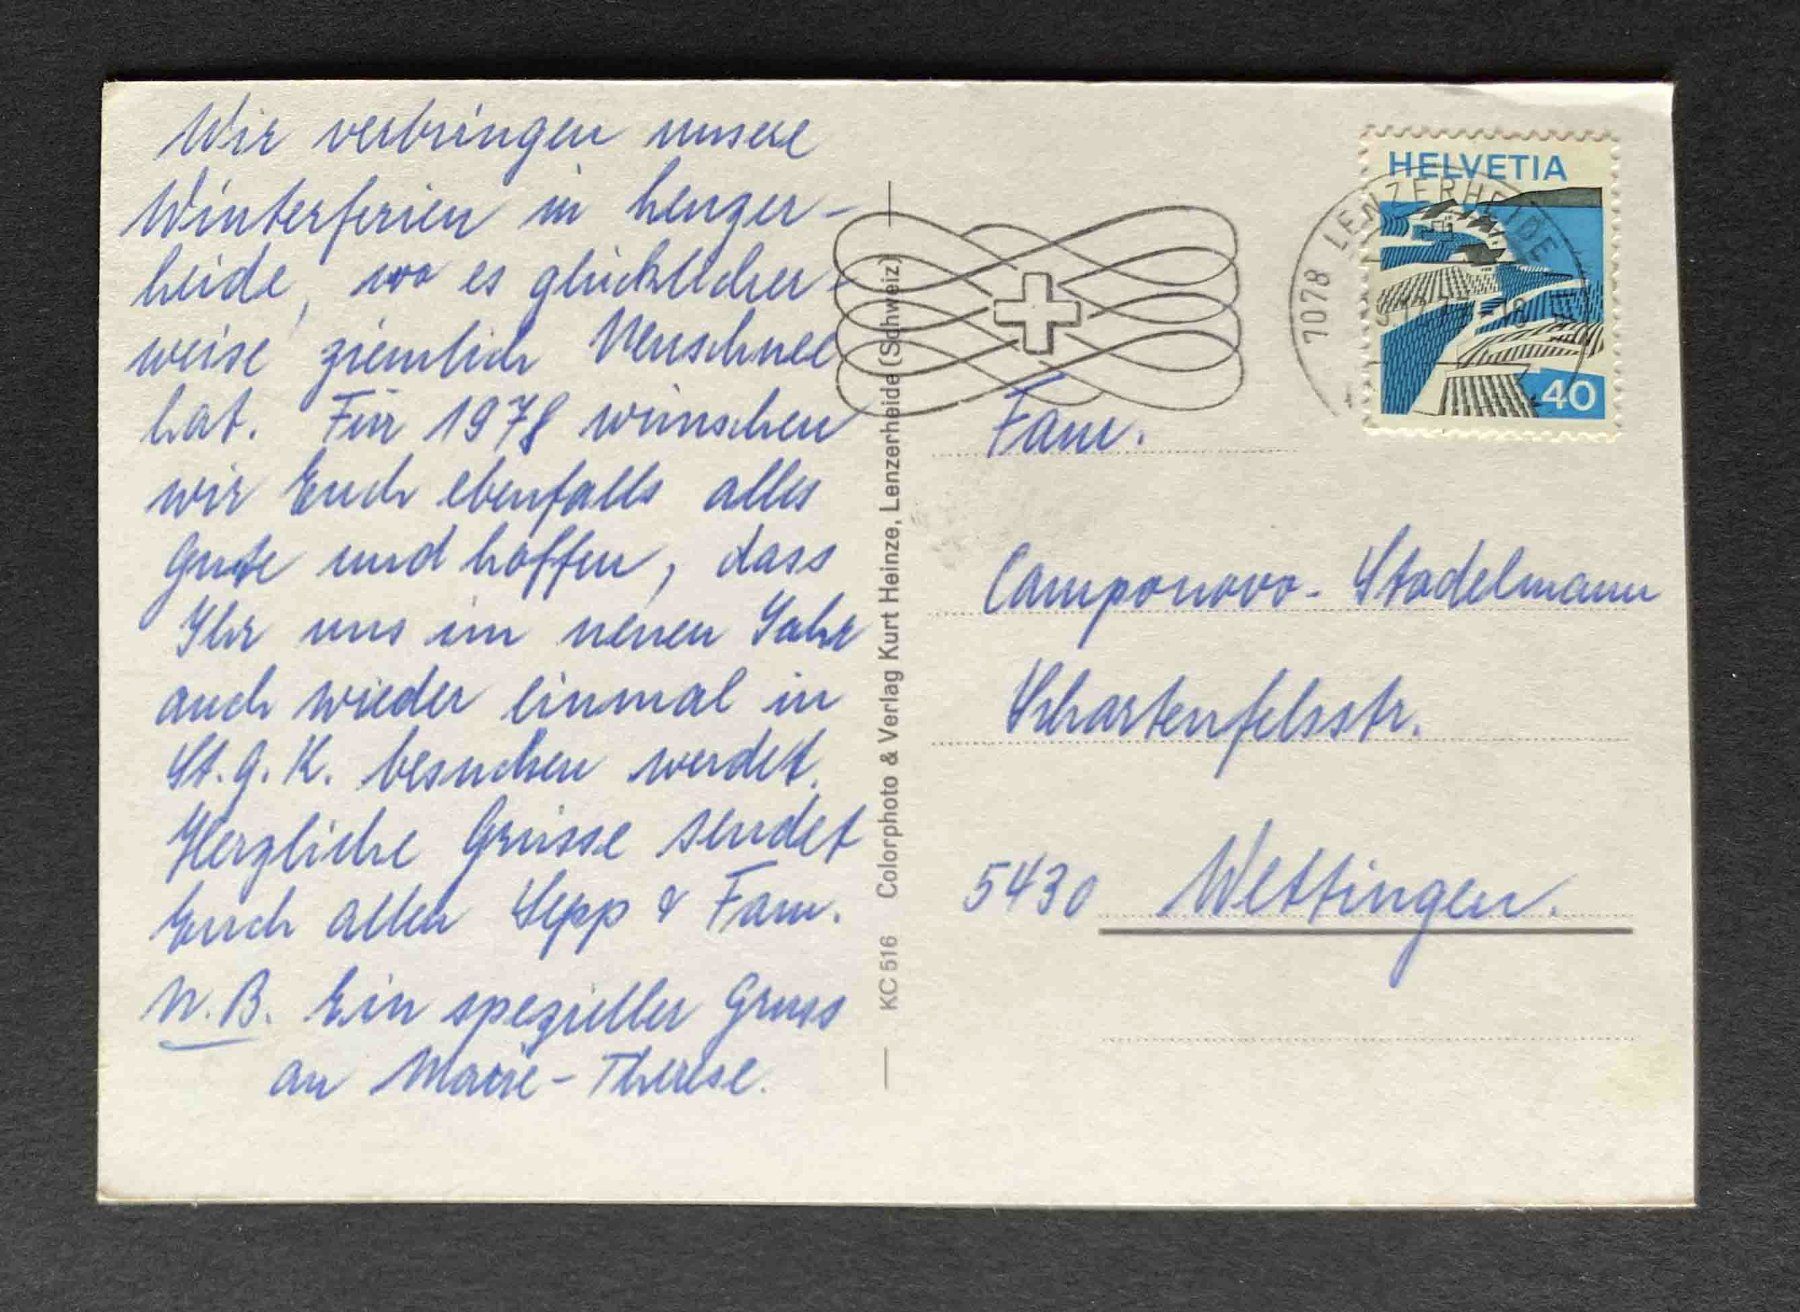 Wir verbringen unsere
Winterferien in Lenzer-
heide, wo es glücklicher-
weise ziemlich Neuschnee
hat. Für 1978 wünschen
wir Euch ebenfalls alles
Gute und hoffen, dass
Ihr uns im neuen Jahr
auch wieder einmal in
St. G. K. besuchen werdet.
Herzliche Grüsse sendet
Euch allen Sepp & Fam.
N.B. Ein spezieller Gruss
an Marie-Therese.
KC 516 Colorphoto & Verlag Kurt Heinze, Lenzerheide (Schweiz)
HELVETIA
40
7078 LENZERHEIDE
Fam.
Camponovo-Stadelmann
Schartenfelsstr.
5430 Wettingen.